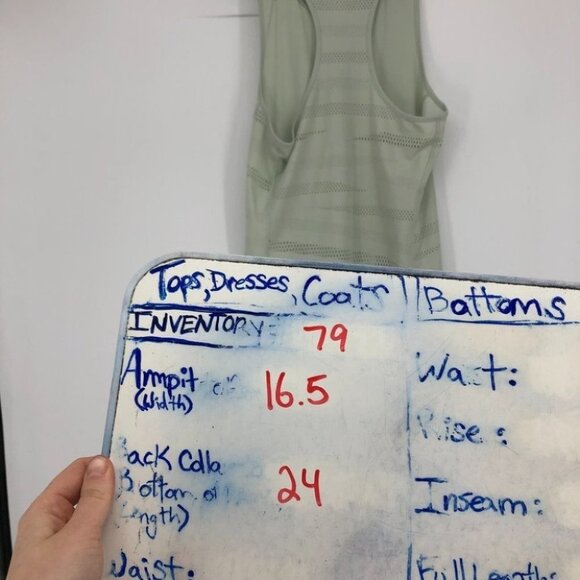 Tops, Dresses, Coats
INVENTORY 79
Armpit
(Width) 16.5
Back
Bottom of 24
Length)
Waist:
Bottoms
Waist:
Rise:
Inseam:
Full Length: